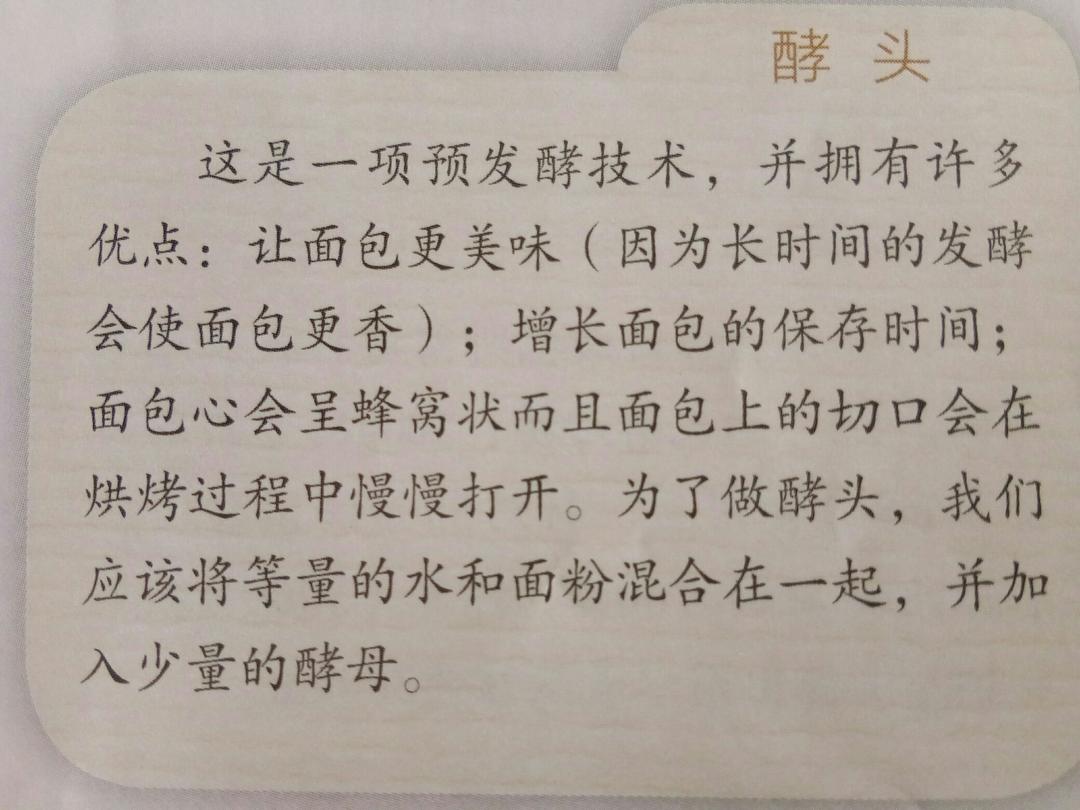 酵头
这是一项预发酵技术，并拥有许多
优点：让面包更美味（因为长时间的发酵
会使面包更香）；增长面包的保存时间；
面包心会呈蜂窝状而且面包上的切口会在
烘烤过程中慢慢打开。为了做酵头，我们
应该将等量的水和面粉混合在一起，并加
入少量的酵母。